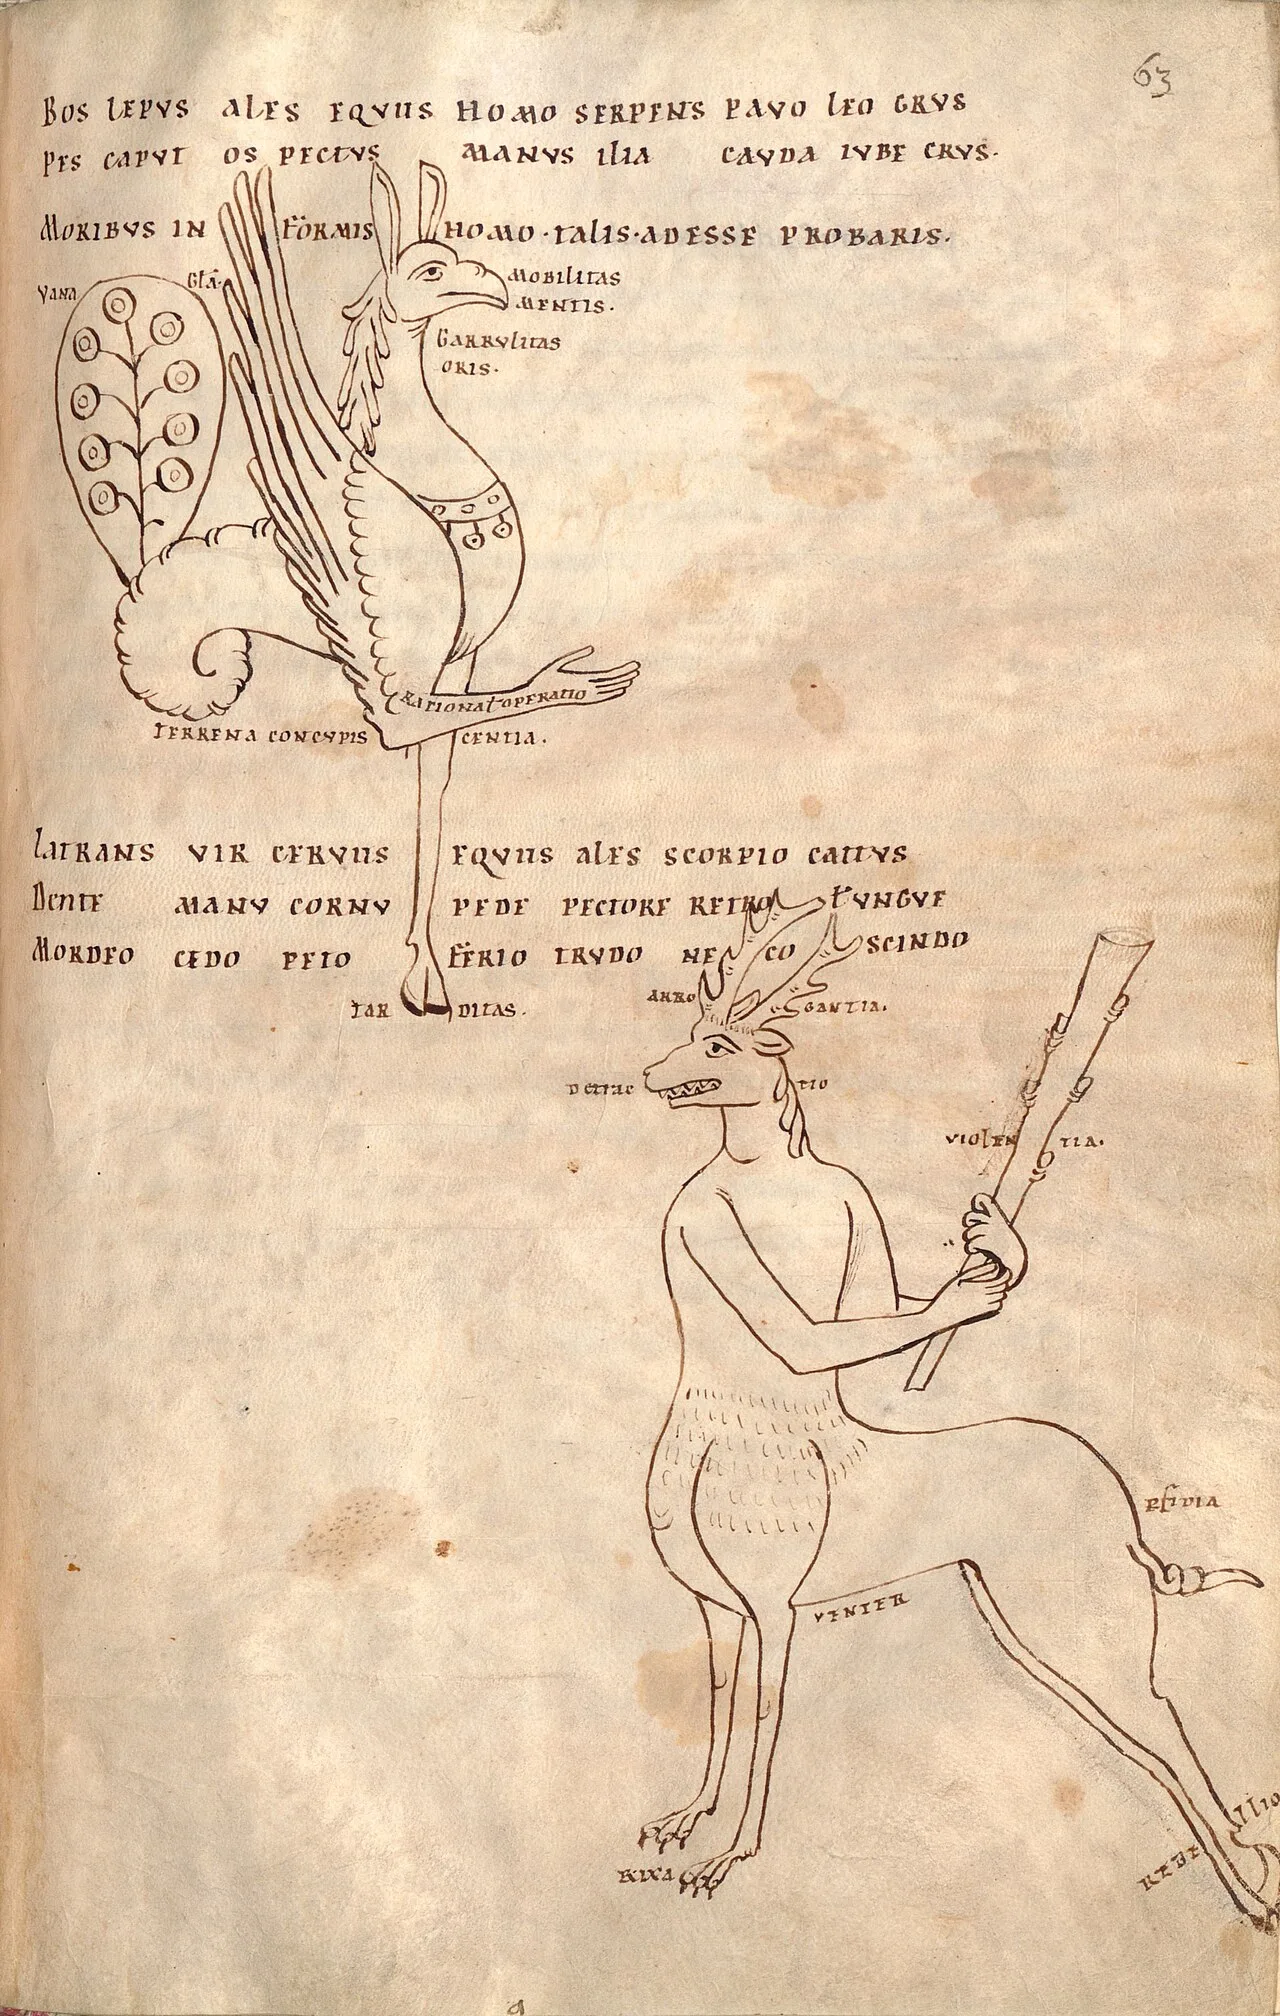 63
BOS LEPUS ALES EQUUS HOMO SERPENS PAVO LEO GRUS
PES CAPUT OS PECTUS MANUS ILIA CAUDA IUBE CRUS.
MORIBUS IN FORMIS HOMO · TALIS · ADESSE PROBARIS.
VANA GLA.
MOBILITAS
MENTIS.
GARRULITAS
ORIS.
RATIONAL OPERATIO
TERRENA CONCUPISCENTIA.
LATRANS VIR CERVUS EQUUS ALES SCORPIO CATTUS
DENTE MANU CORNU PEDE PECTORE RETRO UNGUE
MORDEO CEDO PETO FERIO TRUDO NECO SCINDO
TARDITAS.
ARROGANTIA.
DETRACTIO
VIOLENTIA.
PFIDIA
VENTER
RIXA
REBELLIO